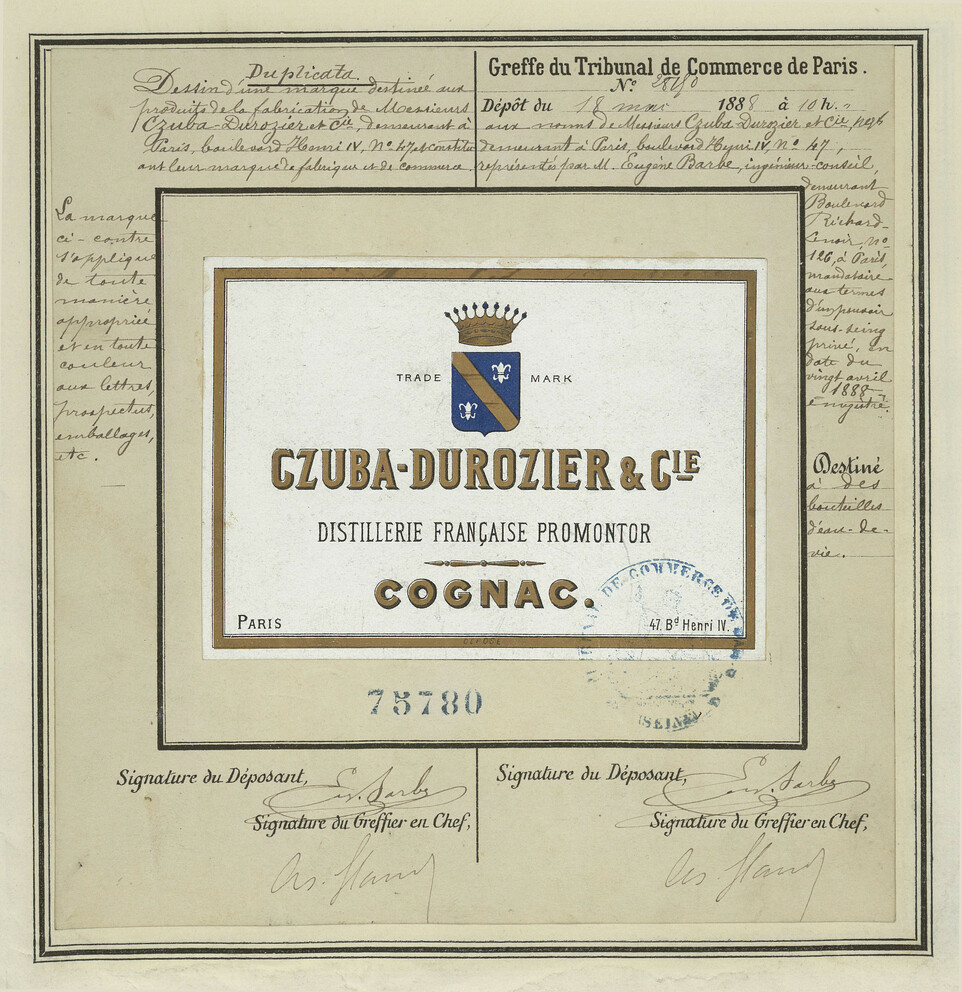 Duplicata.
Dessin d'une marque destinée aux
produits de la fabrication de Messieurs
Czuba-Durozier et Cie, demeurant à
Paris, boulevard Henri IV, No. 47, et constitue
ont leur marque de fabrique et de commerce.
Greffe du Tribunal de Commerce de Paris.
No.
Dépôt du 18 mai 1888 à 10 h.
aux noms de Messieurs Czuba Durozier et Cie,
demeurant à Paris, boulevard Henri IV, No 47,
représentés par M. Eugène Barbe, ingénieur-conseil,
demeurant
Boulevard
Richard-
Lenoir, no
126, à Paris,
mandataire
aux termes
d'un pouvoir
sous-seing
privé, en
date du
vingt avril
1888
énrgistré.
Destiné
à des
bouteilles
d'eau-de-
vie.
La marque
ci-contre
s'applique
de toute
manière
appropriée
et en toute
couleur
aux lettres,
prospectus,
emballages,
etc.
TRADE MARK
CZUBA-DUROZIER & CIE
DISTILLERIE FRANÇAISE PROMONTOR
COGNAC.
PARIS
47. Bd Henri IV.
DE COMMERCE DE
(SEINE)
75780
Signature du Déposant,
Eug. Barbe
Signature du Greffier en Chef,
Signature du Déposant,
Eug. Barbe
Signature du Greffier en Chef,